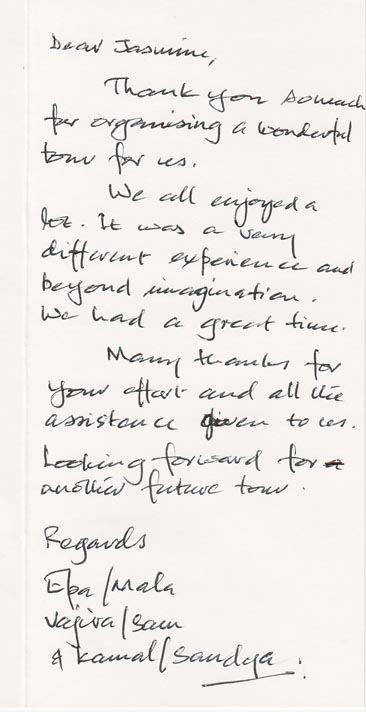 Dear Jasmine,
Thank you so much
for organising a wonderful
tour for us.
We all enjoyed a
lot. It was a very
different experience and
beyond imagination.
We had a great time.
Many thanks for
your effort and all the
assistance given to us.
Looking forward for
another future tour.
Regards
Epa/Mala
Vajira/Sam
& Kamal/Sandya.